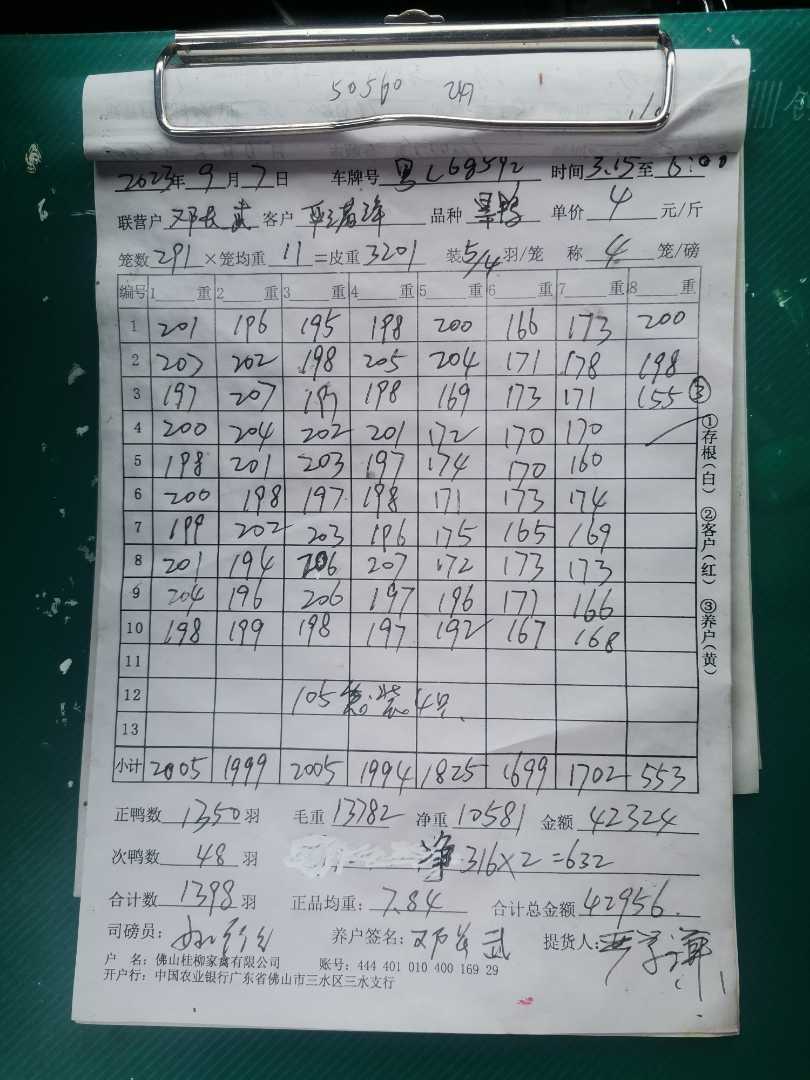 50560
2023年 9 月 7 日 车牌号 粤L68592 时间 3.15 至 6:00
联营户 邓长武 客户 品种 单价 4 元/斤
笼数 291 ×笼均重 11 =皮重 3201 装 5/4 羽/笼 称 4 笼/磅
编号 1 重 2 重 3 重 4 重 5 重 6 重 7 重 8 重
1 201 196 195 198 200 166 173 200
2 207 202 198 205 204 171 178 198
3 197 207 197 198 169 173 171 155 ③
4 200 204 202 201 172 170 170
5 198 201 203 197 174 170 160
6 200 198 197 198 171 173 174
7 199 202 203 196 175 165 169
8 201 194 206 207 172 173 173
9 204 196 206 197 196 171 166
10 198 199 198 197 192 167 168
11
12 105 笼装4只
13
小计 2005 1999 2005 1994 1825 1699 1702 553
正鸭数 1350 羽 毛重 13782 净重 10581 金额 42324
次鸭数 48 羽 净 316×2=632
合计数 1398 羽 正品均重: 7.84 合计总金额 42956.
司磅员: 养户签名: 邓长武 提货人:
户 名: 佛山桂柳家禽有限公司 账号: 444 401 010 400 169 29
开户行: 中国农业银行广东省佛山市三水区三水支行
①存根(白) ②客户(红) ③养户(黄)